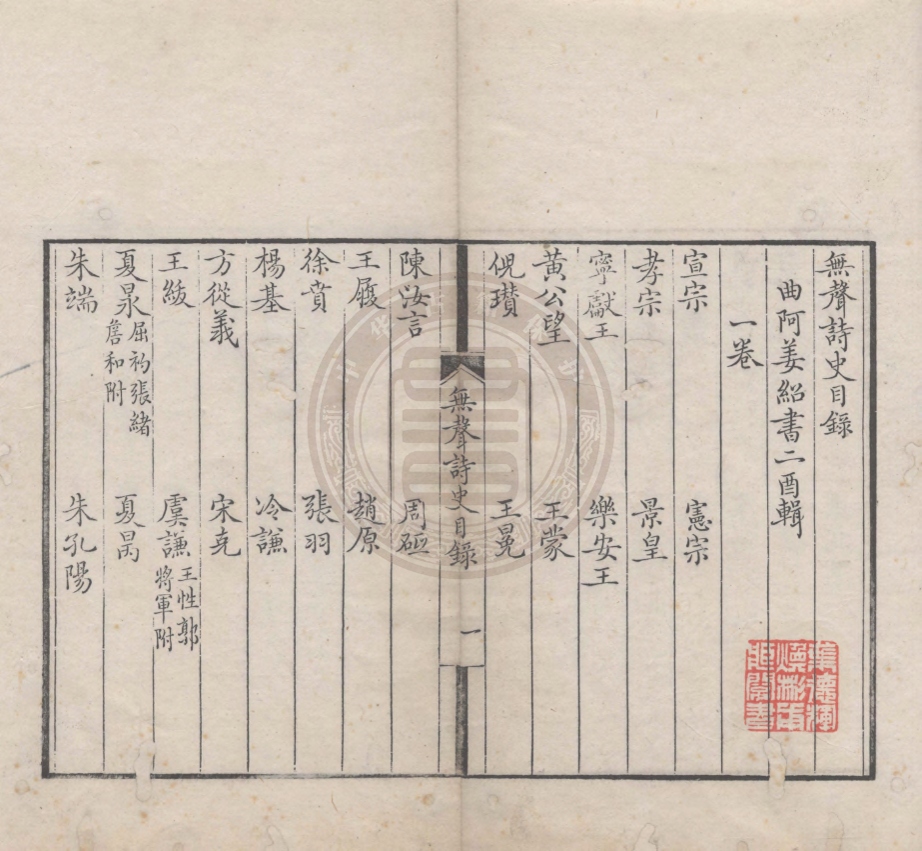 無聲詩史目錄
曲阿姜紹書二酉輯
一卷
宣宗 憲宗
孝宗 景皇
寧獻王 樂安王
黃公望 王蒙
倪瓚 王冕
無聲詩史目錄 一
陳汝言 周砥
王履 趙原
徐賁 張羽
楊基 冷謙
方從義 宋克
王紱 虞謙 王性郭將軍附
夏㫤 屈礿張緒詹和附 夏昺
朱端 朱孔陽